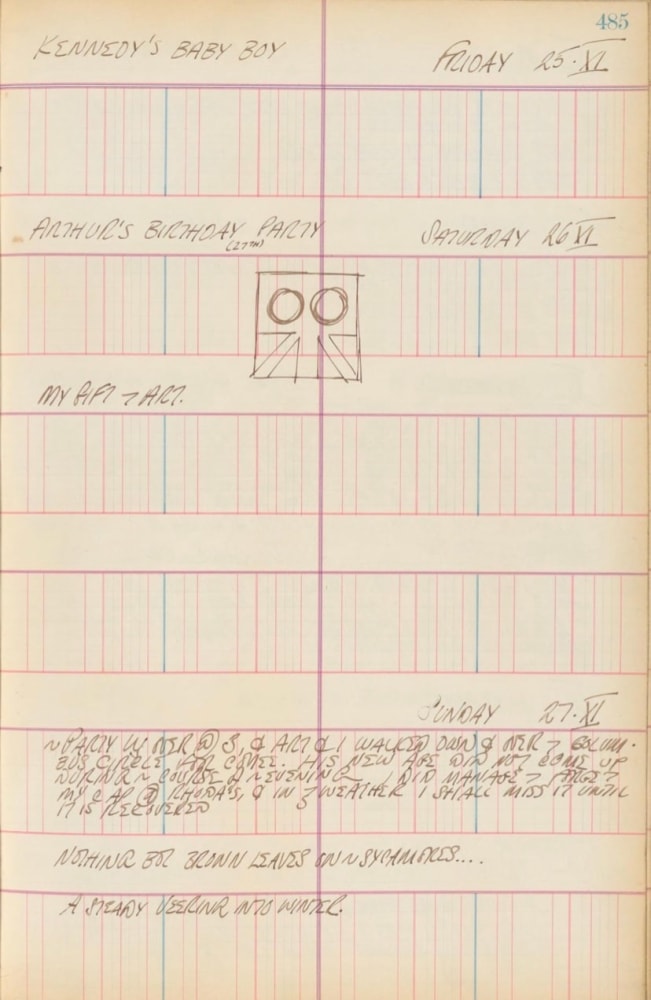 485
KENNEDY'S BABY BOY FRIDAY 25·XI
ARTHUR'S BIRTHDAY PARTY SATURDAY 26 XI
(27TH)
MY GIFT → ART.
SUNDAY 27·XI
~ PARTY W OVER @ 3, & ART & I WALKED DOWN & OVER → COLUM-
BUS CIRCLE FOR COFFEE. HIS NEW AGE DID NOT COME UP
DURING ~ COURSE ~ EVENING. I DID MANAGE → FORGET
MY CAP @ RHODA'S, & IN WEATHER I SHALL MISS IT UNTIL
IT IS RECOVERED
NOTHING BUT BROWN LEAVES ON ~ SYCAMORES....
A STEADY VEERING INTO WINTER.